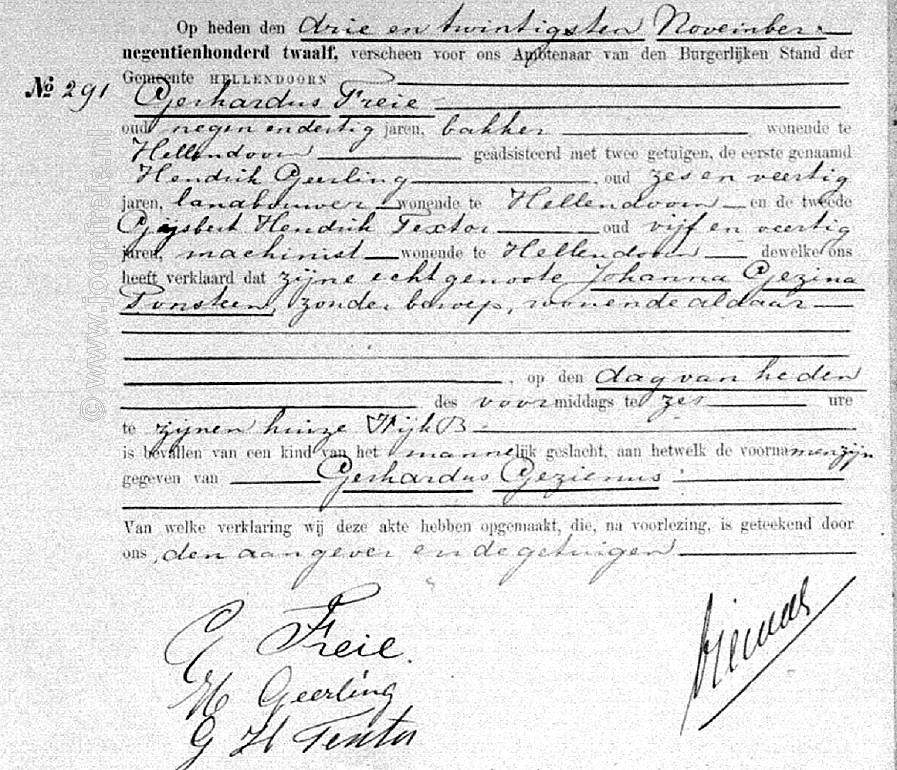 Op heden den drie en twintigsten November
negentienhonderd twaalf, verscheen voor ons Ambtenaar van den Burgerlijken Stand der
Gemeente HELLENDOORN
№ 291
Gerhardus Freie
oud negen en dertig jaren, bakker wonende te
Hellendoorn geadsisteerd met twee getuigen, de eerste genaamd
Hendrik Geerling, oud zes en veertig
jaren, landbouwer wonende te Hellendoorn en de tweede
Gijsbert Hendrik Textor oud vijf en veertig
jaren, machinist wonende te Hellendoorn dewelke ons
heeft verklaard dat zijne echtgenoote Johanna Gezina
Ponsteen, zonder beroep, wonende aldaar
, op den dag van heden
des voormiddags te zes ure
te zijnen huize Wijk B
is bevallen van een kind van het mannelijk geslacht, aan hetwelk de voornamen zijn
gegeven van Gerhardus Gezienus
Van welke verklaring wij deze akte hebben opgemaakt, die, na voorlezing, is geteekend door
ons, den aangever en de getuigen
G Freie.
H Geerling
G H Textor
© www.joopfreis.nl